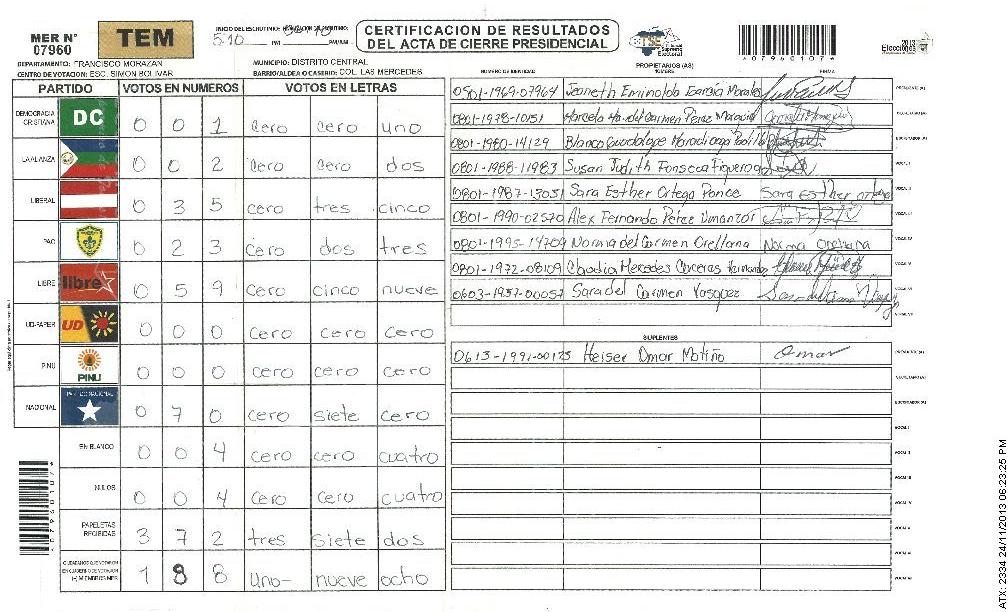 MER N° 07960
TEM
INICIO DEL ESCRUTINIO:
5:10 PM PM/AM
CERTIFICACIÓN DE RESULTADOS
DEL ACTA DE CIERRE PRESIDENCIAL
TSE Tribunal Supremo Electoral
2013 Elecciones
*07960107*
DEPARTAMENTO: FRANCISCO MORAZAN
MUNICIPIO: DISTRITO CENTRAL
CENTRO DE VOTACION: ESC. SIMON BOLIVAR
BARRIO/ALDEA O CASERIO: COL. LAS MERCEDES
PROPIETARIOS (AS)
NUMERO DE IDENTIDAD NOMBRE FIRMA
PARTIDO VOTOS EN NUMEROS VOTOS EN LETRAS
DEMOCRACIA CRISTIANA DC 0 0 1 cero cero uno
LA ALIANZA 0 0 2 cero cero dos
LIBERAL 0 3 5 cero tres cinco
PAC 0 2 3 cero dos tres
LIBRE libre 0 5 9 cero cinco nueve
UD-FAPER UD 0 0 0 cero cero cero
PINU PINU 0 0 0 cero cero cero
NACIONAL PARTIDO NACIONAL 0 7 0 cero siete cero
EN BLANCO 0 0 4 cero cero cuatro
NULOS 0 0 4 cero cero cuatro
PAPELETAS RECIBIDAS 3 7 2 tres siete dos
CIUDADANOS QUE VOTARON EN CUADERNO DE VOTACION (+) MIEMBROS MER 1 8 8 uno- nueve ocho
0801-1969-07964 Jeaneth Eminolda Garcia Morales PRESIDENTE (A)
0801-1978-10151 Marcela Carmen Perez SECRETARIO (A)
0801-1980-14129 Blanca Guadalupe Maradiaga ESCRUTADOR (A)
0801-1988-11983 Susan Judith Fonseca Figueroa VOCAL I
0801-1987-13051 Sara Esther Ortega Ponce Sara Esther Ortega VOCAL II
0801-1990-02570 Alex Fernando Perez Umanzor VOCAL III
0801-1995-14709 Norma del Carmen Orellana Norma Orellana VOCAL IV
0801-1972-08109 Claudia Mercedes VOCAL V
0603-1957-00057 Sara del Carmen Vasquez VOCAL VI
VOCAL VII
SUPLENTES
0613-1991-00175 Heiser Omar Matiño Omar PRESIDENTE (A)
SECRETARIO (A)
ESCRUTADOR (A)
VOCAL I
VOCAL II
VOCAL III
VOCAL IV
VOCAL V
VOCAL VI
VOCAL VII
*07960107*
ATX: 2334 24/11/2013 06:23:25 PM